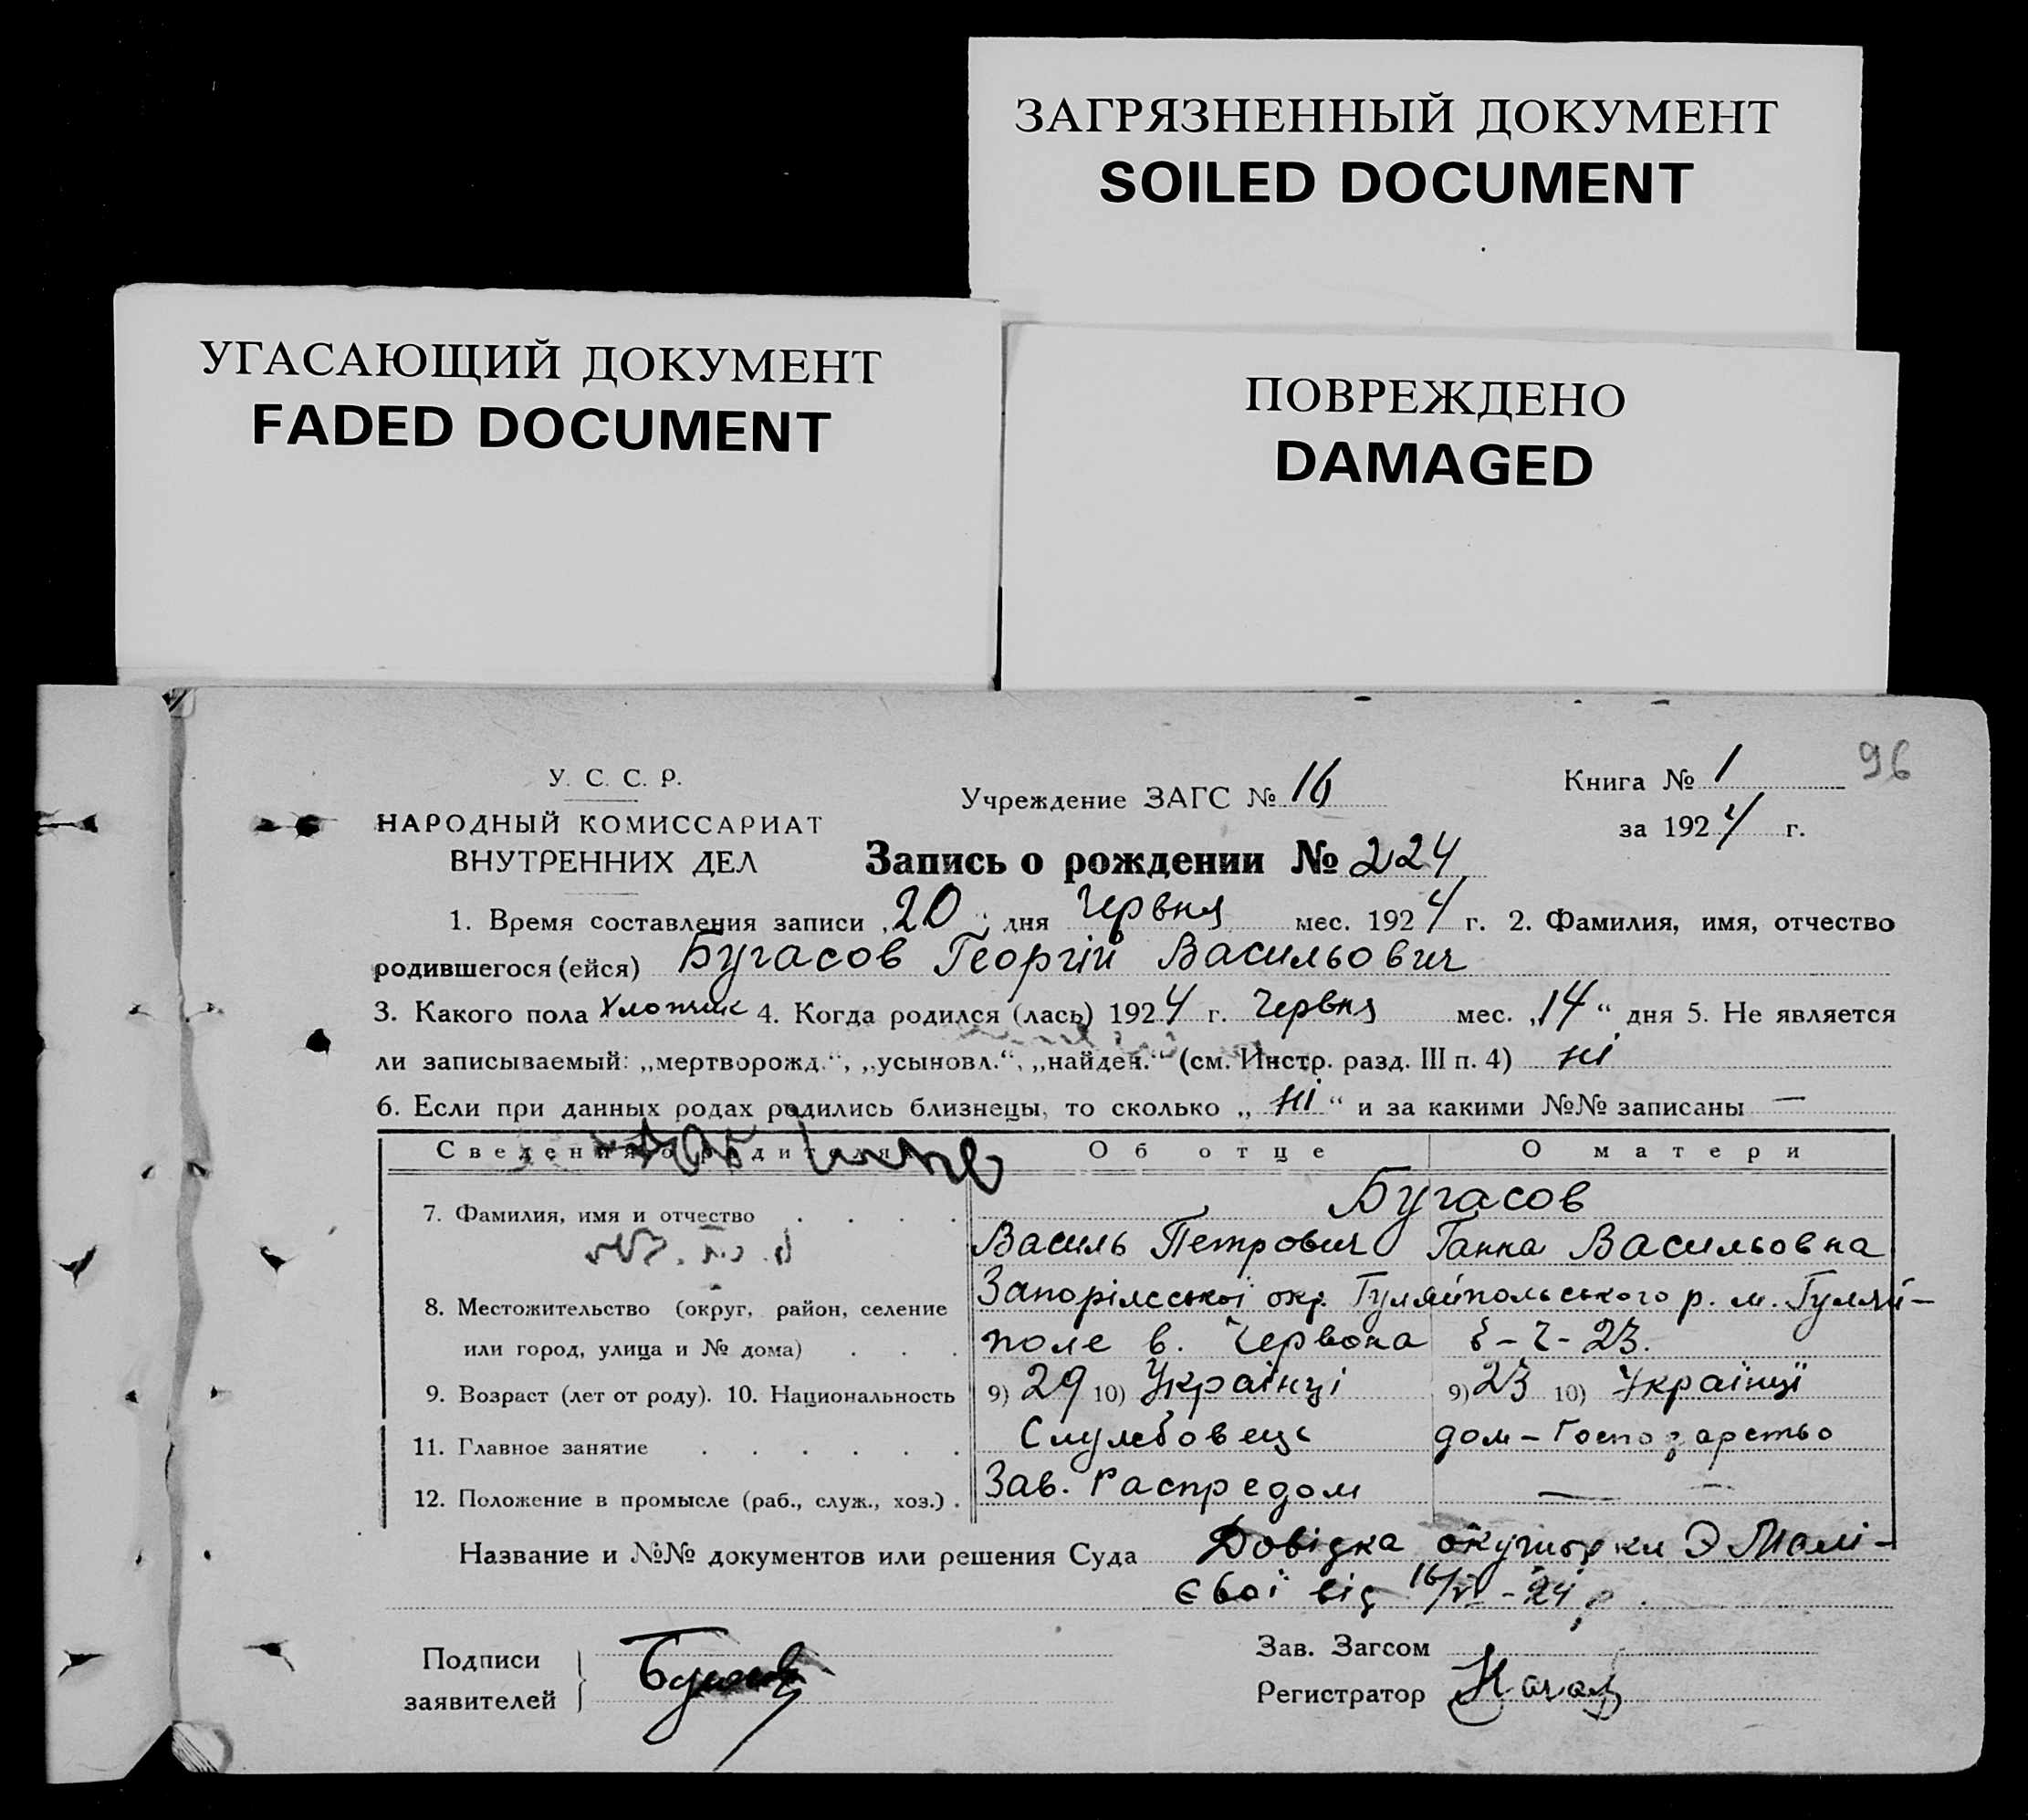 ЗАГРЯЗНЕННЫЙ ДОКУМЕНТ
SOILED DOCUMENT
УГАСАЮЩИЙ ДОКУМЕНТ
FADED DOCUMENT
ПОВРЕЖДЕНО
DAMAGED
96
У. С. С. Р.
НАРОДНЫЙ КОМИССАРИАТ
ВНУТРЕННИХ ДЕЛ
Учреждение ЗАГС № 16
Книга № 1
за 1924 г.
Запись о рождении № 224
1. Время составления записи „20“ дня Червня мес. 1924 г. 2. Фамилия, имя, отчество
родившегося (ейся) Бугасов Георгій Васильович
3. Какого пола Хлопчик 4. Когда родился (лась) 1924 г. Червня мес. „14“ дня 5. Не является
ли записываемый: „мертворожд.“, „усыновл.“, „найден.“ (см. Инстр. разд. III п. 4) ні
6. Если при данных родах родились близнецы, то сколько „ ні “ и за какими №№ записаны —
Сведения о родителях Об отце О матери
7. Фамилия, имя и отчество . . . . Бугасов
Василь Петрович Ганна Васильовна
8. Местожительство (округ, район, селение Запоріжської окр. Гуляйпольського р. м. Гуляй-
или город, улица и № дома) . . . поле в. Червона 23.
9. Возраст (лет от роду). 10. Национальность 9) 29 10) Українці 9) 23 10) Українці
11. Главное занятие . . . . . . Службовець дом-Господарство
12. Положение в промысле (раб., служ., хоз.) . Зав. Распредом — —
Название и №№ документов или решения Суда Довідка акушорки
від 16/VI-24 р.
Подписи
заявителей
Зав. Загсом
Регистратор